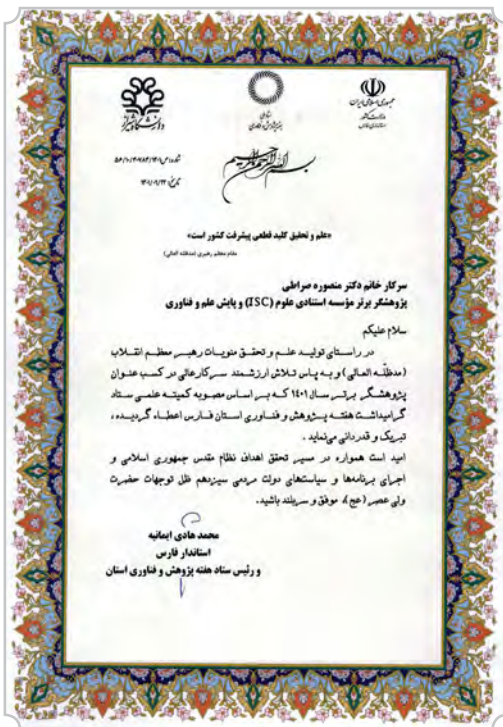 جمهوری اسلامی ایران
وزارت کشور
استانداری فارس
دانشگاه شیراز
بسم الله الرحمن الرحیم
تاریخ: ۱۴۰۱/۰۹/۲۲
«علم و تحقیق کلید قطعی پیشرفت کشور است»
مقام معظم رهبری (مدظله العالی)
سرکار خانم دکتر منصوره صراطی
پژوهشگر برتر مؤسسه استنادی علوم (ISC) و پایش علم و فناوری
سلام علیکم
در راستای تولید علم و تحقق منویات رهبر معظم انقلاب
(مدظله العالی) و به پاس تلاش ارزشمند سرکارعالی در کسب عنوان
پژوهشگر برتر سال ۱۴۰۱ که بر اساس مصوبه کمیته علمی ستاد
گرامیداشت هفته پژوهش و فناوری استان فارس اعطاء گردیده،
تبریک و قدردانی می‌نماید.
امید است همواره در مسیر تحقق اهداف نظام مقدس جمهوری اسلامی و
اجرای برنامه‌ها و سیاستهای دولت مردمی سیزدهم ظل توجهات حضرت
ولی عصر (عج)، موفق و سربلند باشید.
محمد هادی ایمانیه
استاندار فارس
و رئیس ستاد هفته پژوهش و فناوری استان